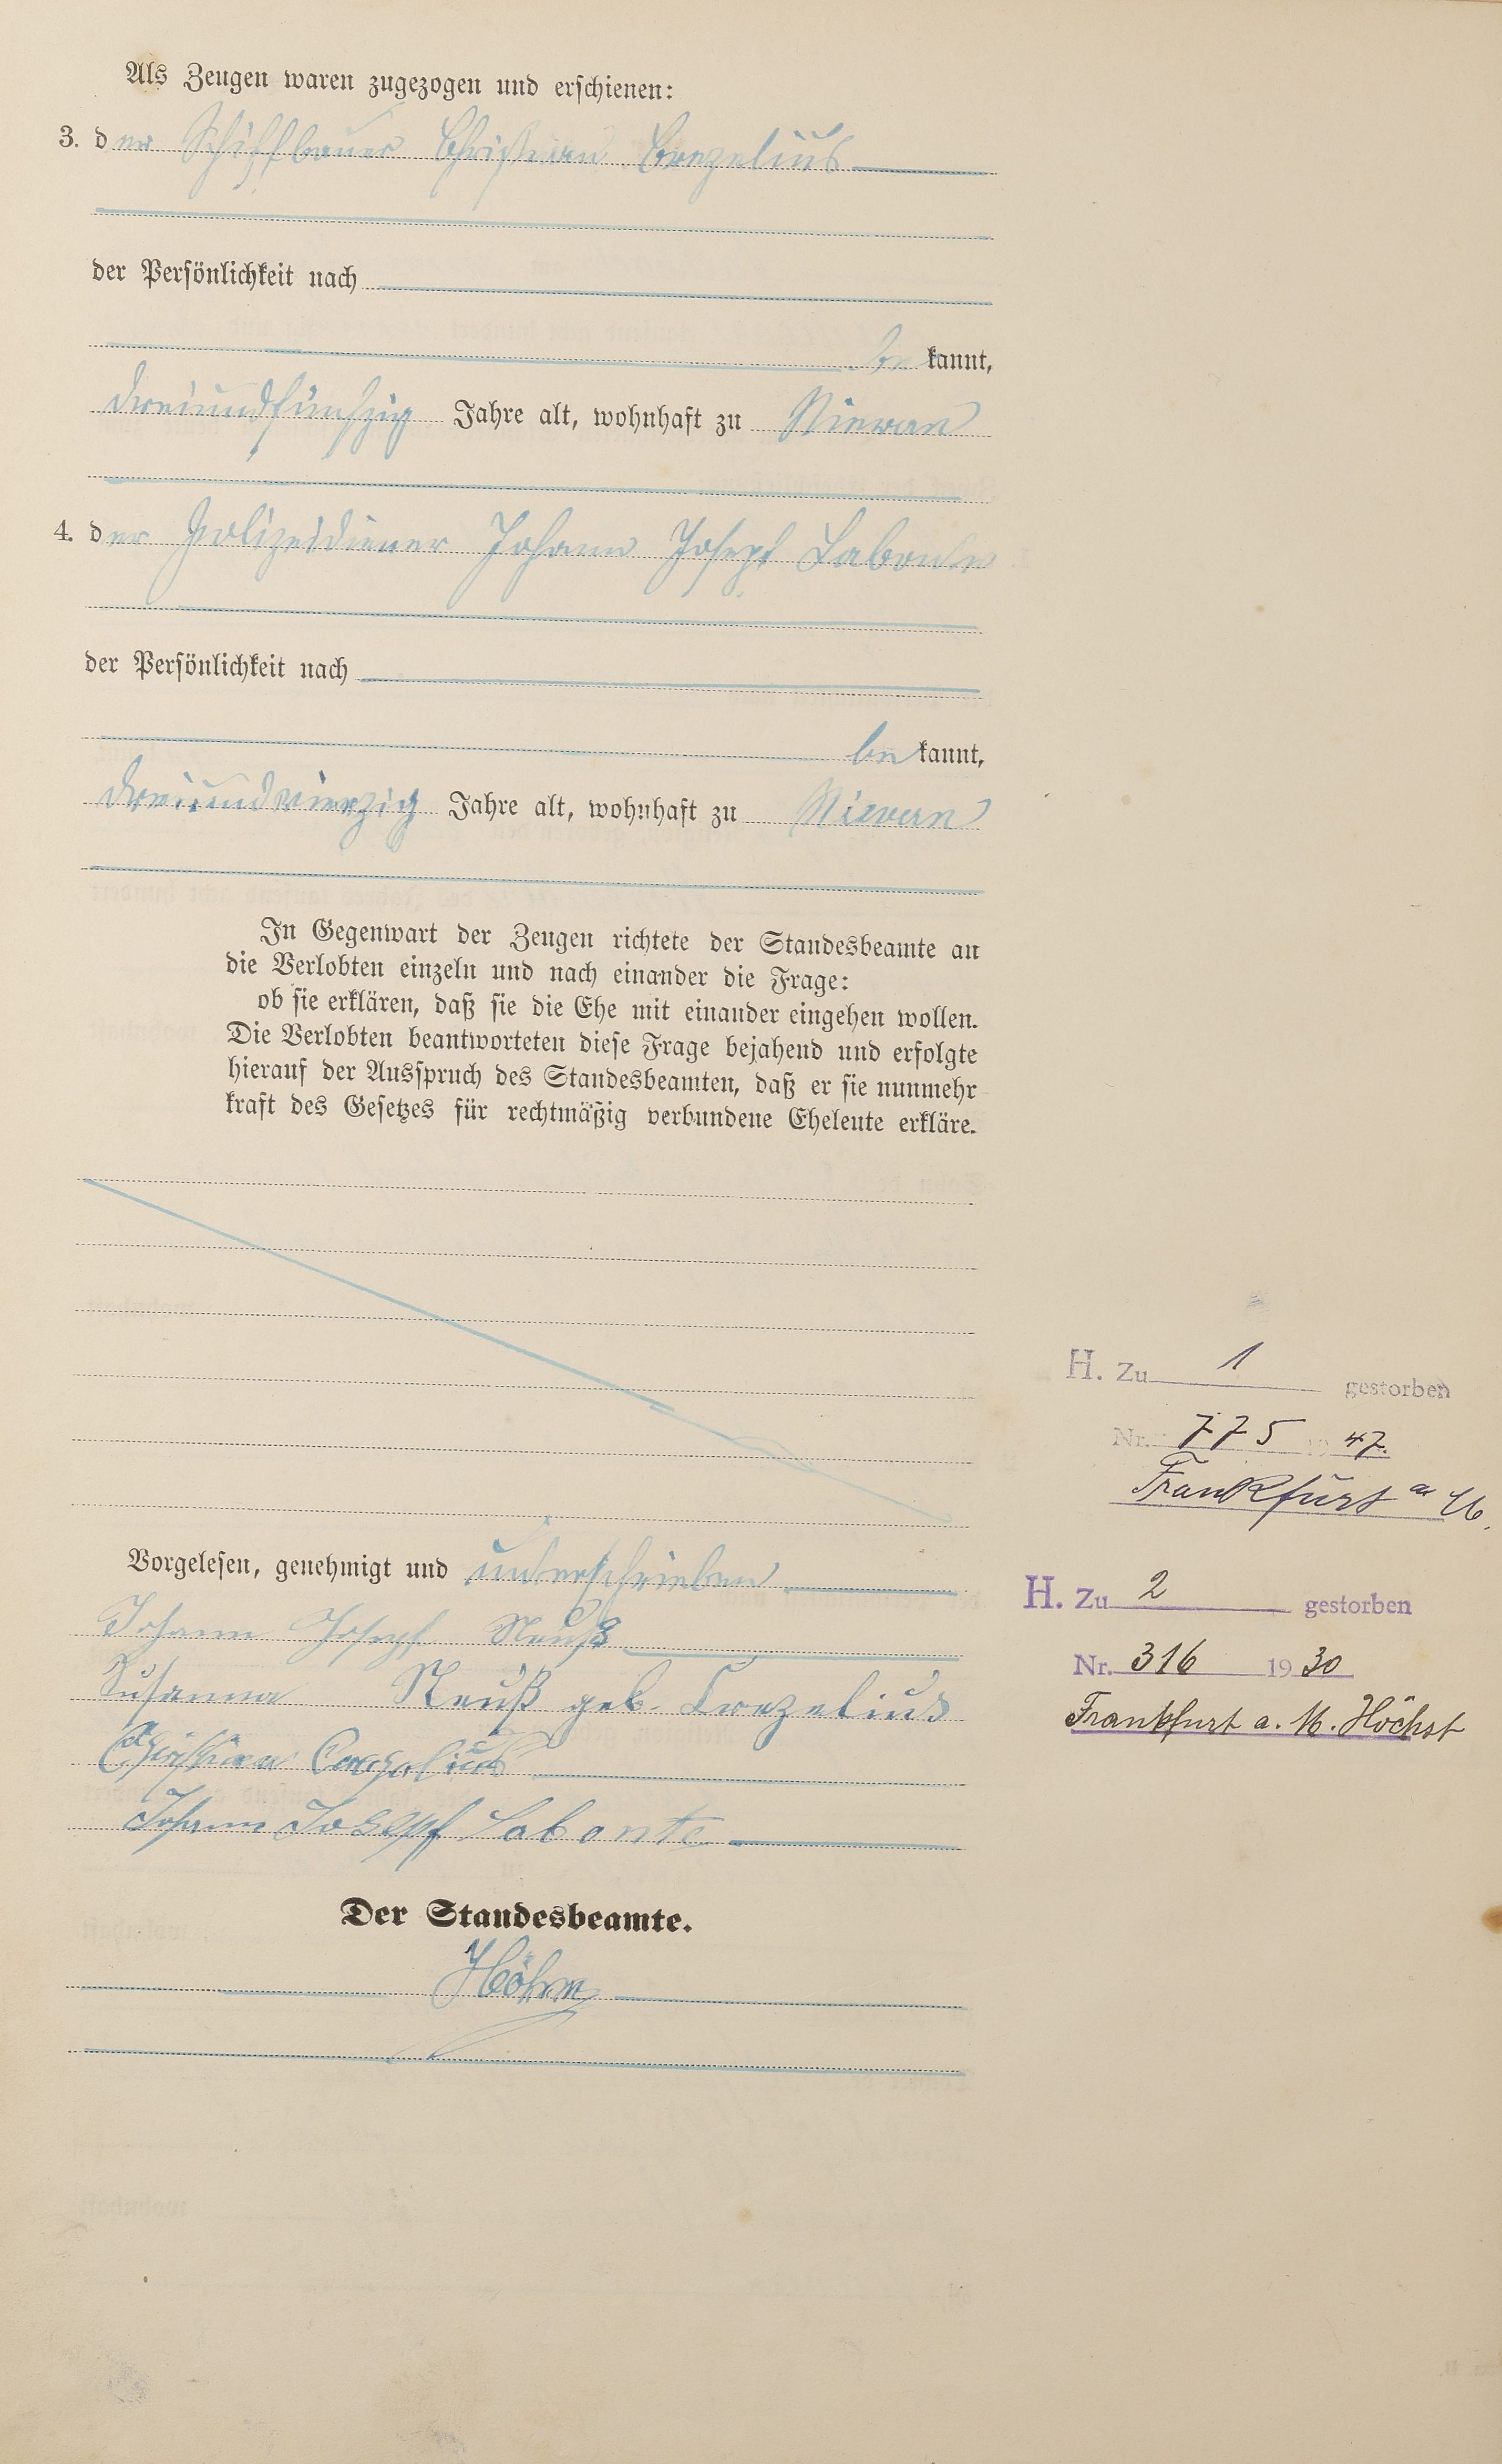 Als Zeugen waren zugezogen und erschienen:
3. der Schiffbauer Christian Crezelius
der Persönlichkeit nach
be kannt,
dreiundfünfzig Jahre alt, wohnhaft zu Nievern
4. der Polizeidiener Johann Joseph Labonte
der Persönlichkeit nach
be kannt,
dreiundvierzig Jahre alt, wohnhaft zu Nievern
In Gegenwart der Zeugen richtete der Standesbeamte an
die Verlobten einzeln und nach einander die Frage:
ob sie erklären, daß sie die Ehe mit einander eingehen wollen.
Die Verlobten beantworteten diese Frage bejahend und erfolgte
hierauf der Ausspruch des Standesbeamten, daß er sie nunmehr
kraft des Gesetzes für rechtmäßig verbundene Eheleute erkläre.
H. Zu 1 gestorben
Nr. 775 19 47.
Frankfurt a M.
Vorgelesen, genehmigt und unterschrieben
Johann Joseph Neuß
Susanna Neuß geb. Crezelius
Christian Crezelius
Johann Josepf Labonte
H. Zu 2 gestorben
Nr. 316 19 30
Frankfurt a. M. Höchst
Der Standesbeamte.
Höhn